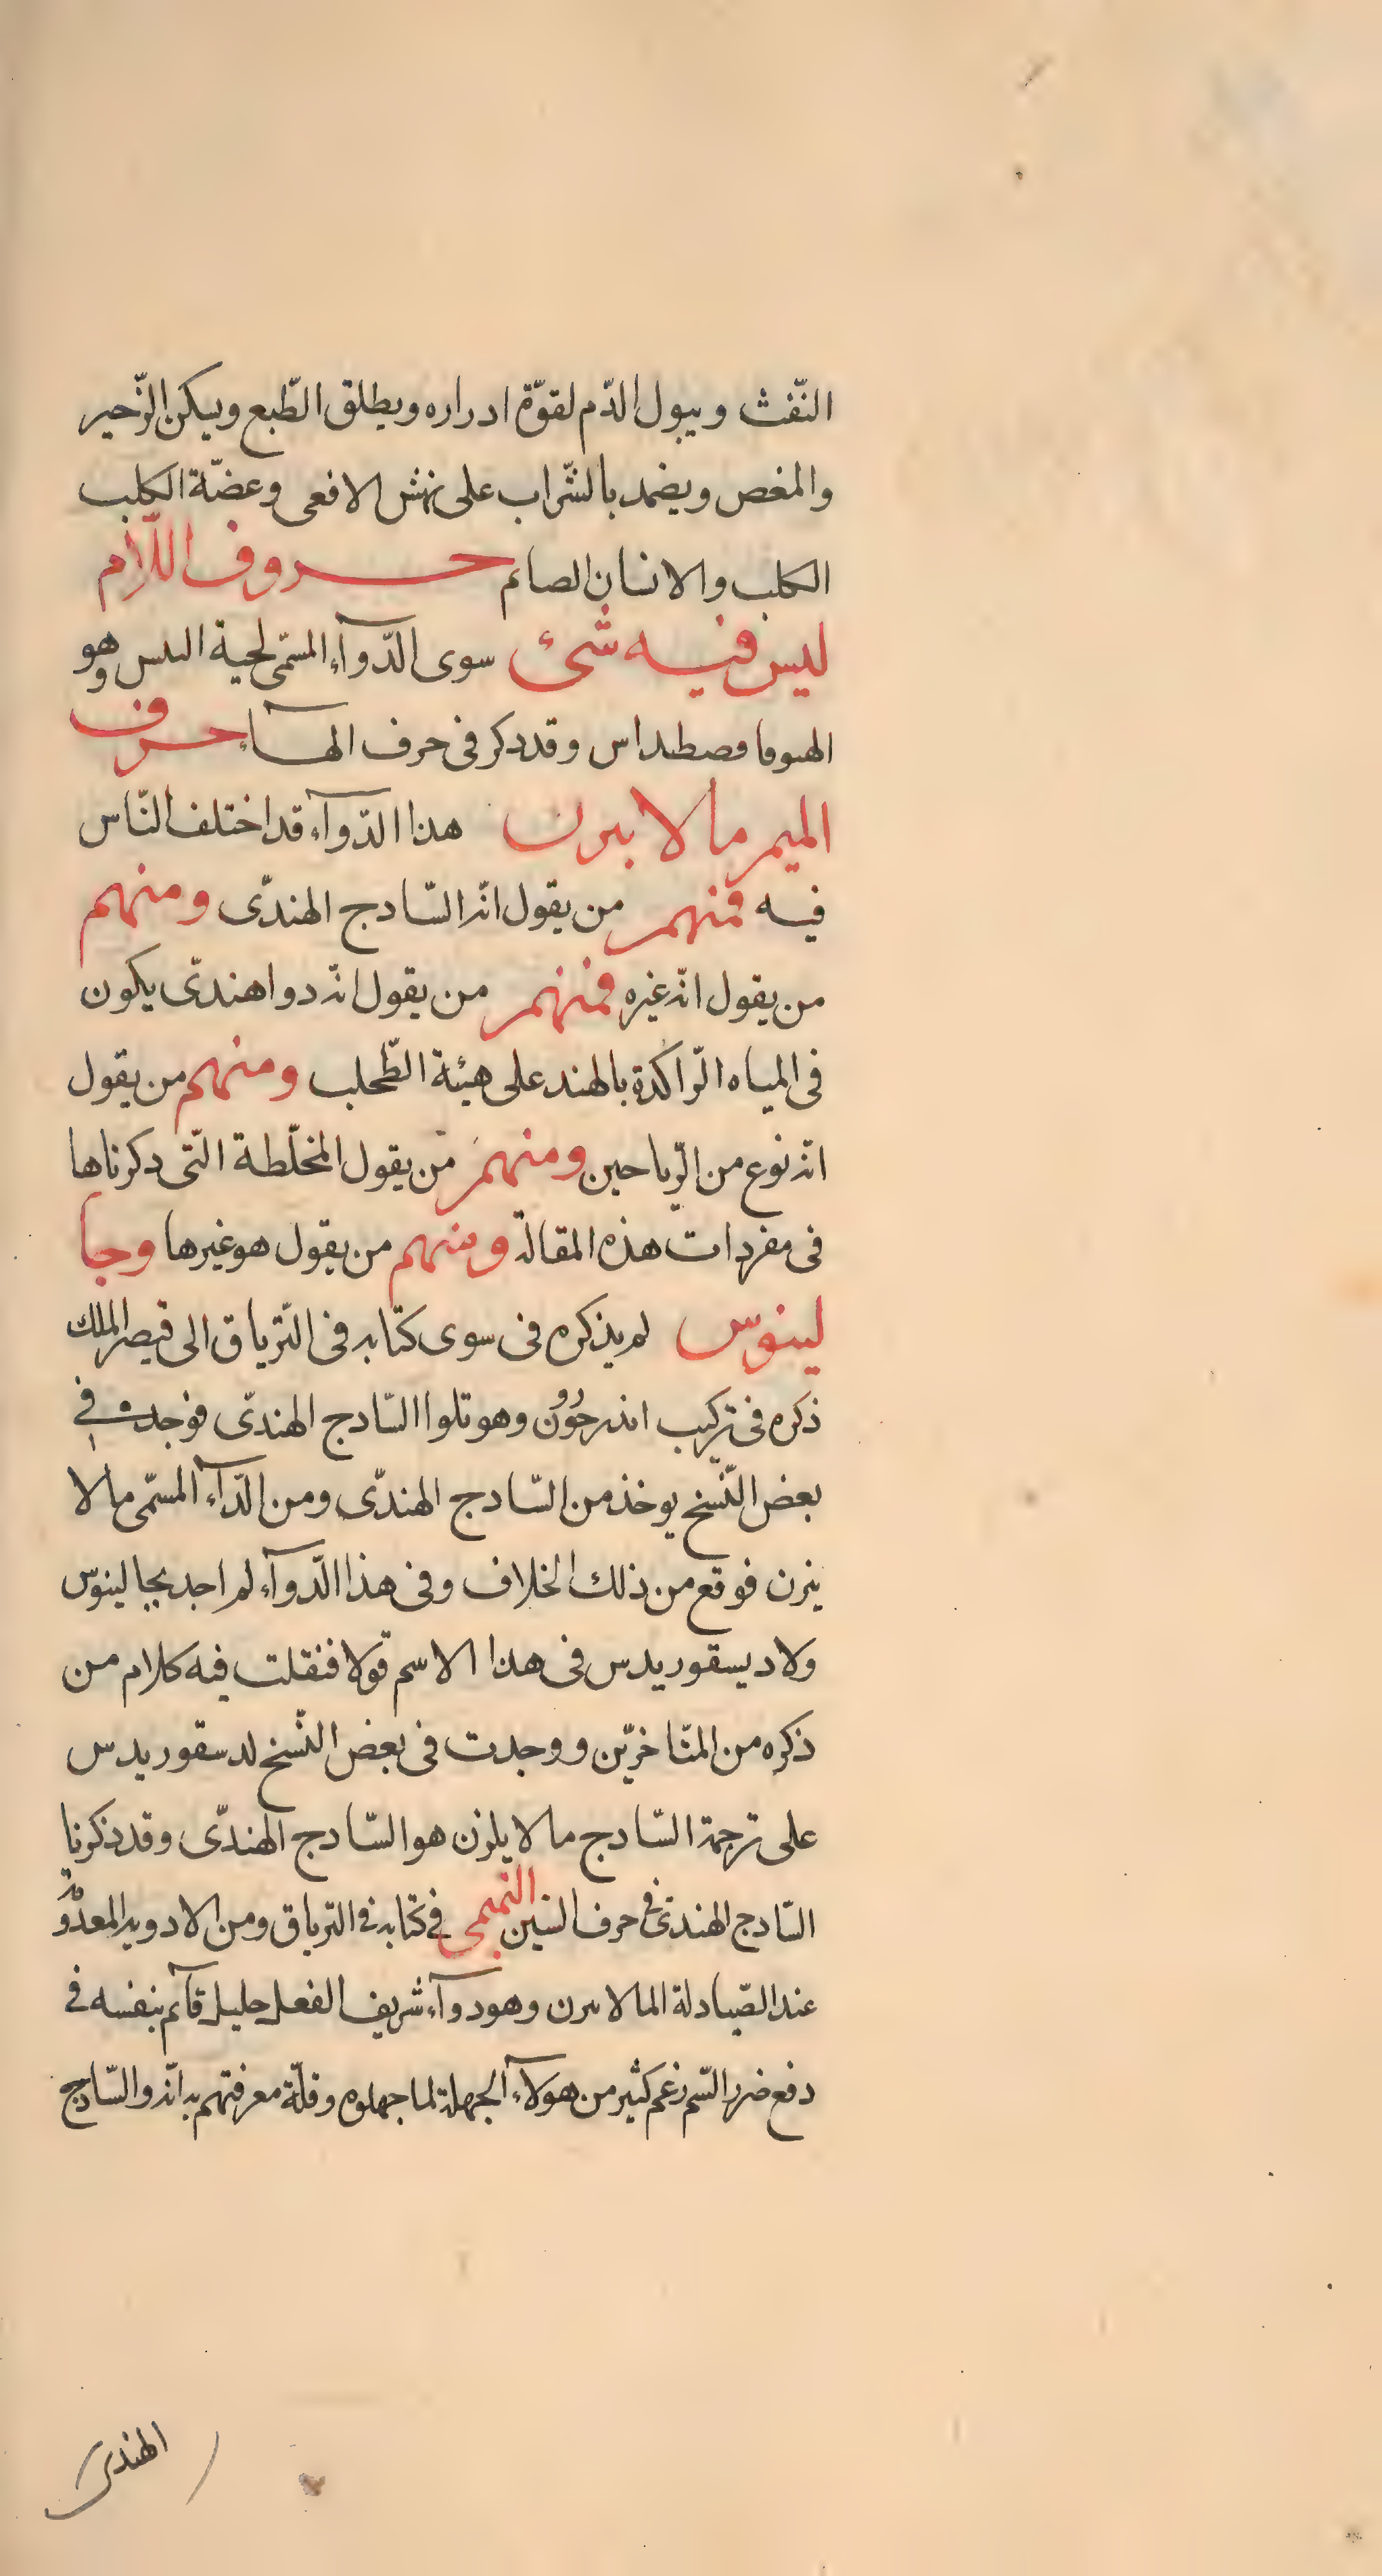 النّفث ويبول الدّم لقوّة ادراره ويطلق الطّبع ويسكن الزّحير
والمغص ويضمد بالشّراب على نهش الافعى وعضّة الكلب
الكلب والانسان الصائم حروف اللّام
ليس فيه شئ سوى الدّوآء المسمّى لحية التيس وهو
وقد دكر فى حرف الهآء حرف
الميم مالا بيرن هذا الدّوآء قد اختلف النّاس
فيه فمنهم من يقول انّه السّادج الهندّى ومنهم
من يقول انّه غيره فمنهم من يقول انّه دوا هندّى يكون
فى المياه الرّاكدة بالهند على هيئة الطّحلب ومنهم من يقول
انّه نوع من الرّياحين ومنهم من يقول المخلّطة الّتى دكرناها
فى مفردات هذه المقالة ومنهم من يقول هو غيرها وجا
لينوس لم يذكره فى سوى كتابه فى التّرياق الى قيصر الملك
ذكره فى تركيب وهو تلوا السّادج الهندّى فوجدت فى
بعض النّسخ يوخذ من السّادج الهندّى ومن الدّآء المسمّى مالا
ينرن فوقع من ذلك الخلاف وفى هذا الدّوآء لم اجد لجالينوس
ولا ديسقوريدس فى هذا الاسم قولا فنقلت فيه كلام من
ذكره من المتاخرّين ووجدت فى بعض النّسخ لدسقوريدس
على ترجمة السّادج مالا يلرن هو السّادج الهندّى وقد ذكرنا
السّادج الهندّى فى حرف السين التميمى فى كتابه فى التّرياق ومن الادويه المعدومة
عند الصّيادلة المالا برن وهو دوآء شريف الفعل جليل قآئم بنفسه فى
دفع ضرر السّم زعم كثير من هولآء الجهلة لما جهلوه وقلّة معرفتهم به انّه والسّادج
الهندى